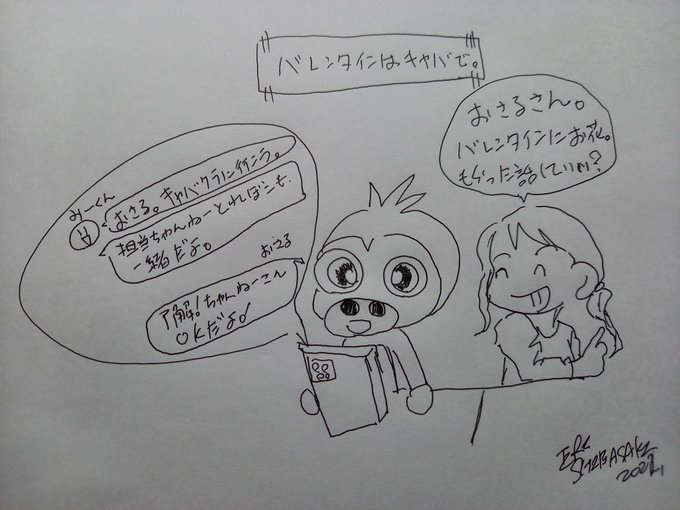 バレンタインはキャバで。
おさるさん。
バレンタインにお花。
もらった話していい?
みーくん
おさる。キャバクラに行こう。
担当ちゃんねーとれぽにも
一緒だよ。
おさる
了解!ちゃんねーさん
OKだよ
SHIBASAKI
2021.